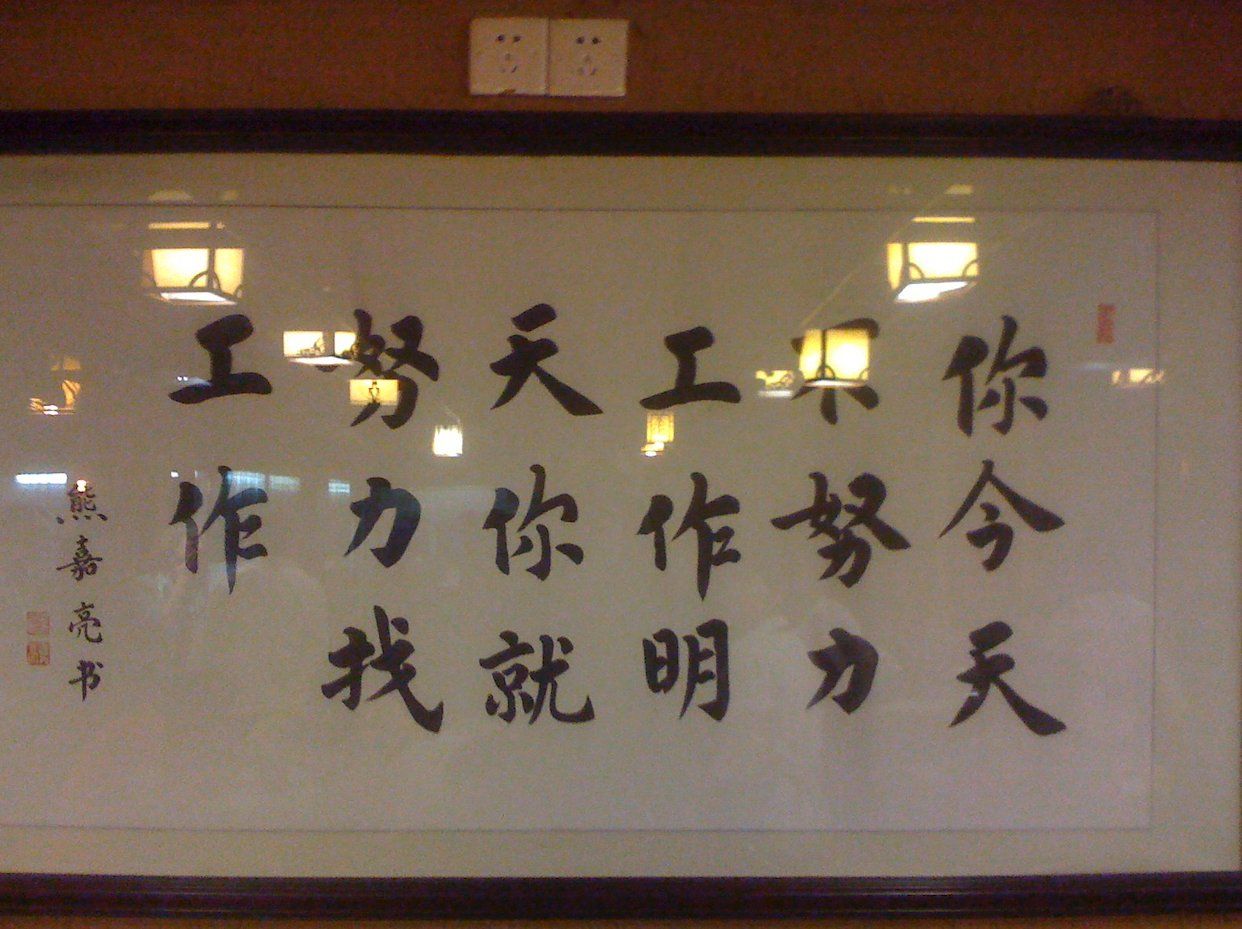 你今天
不努力
工作明
天你就
努力找
工作
熊嘉亮书